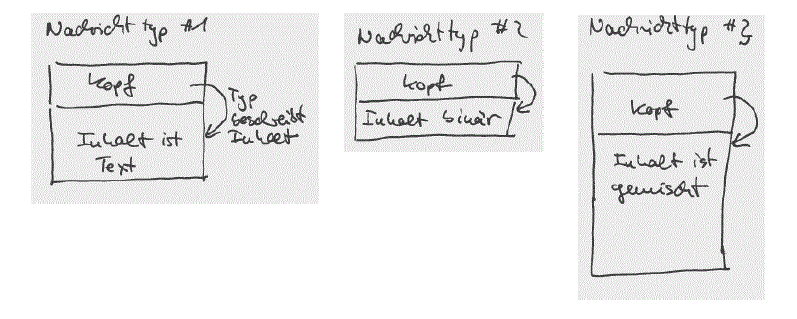 Nachricht typ #1
Kopf
Typ
beschreibt
Inhalt
Inhalt ist
Text
Nachrichttyp #2
Kopf
Inhalt binär
Nachrichttyp #3
Kopf
Inhalt ist
gemischt